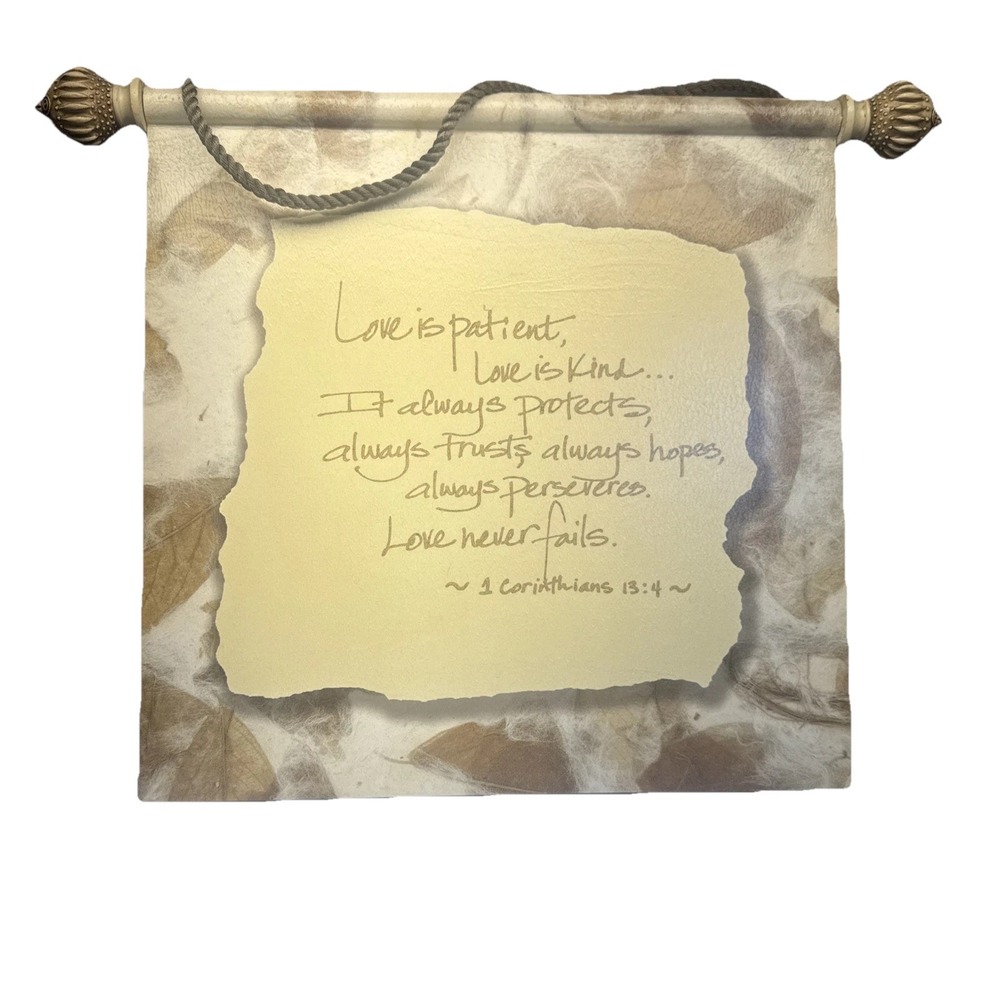 Love is patient,
Love is kind...
It always protects,
always trusts, always hopes,
always perseveres.
Love never fails.
~ 1 Corinthians 13:4 ~